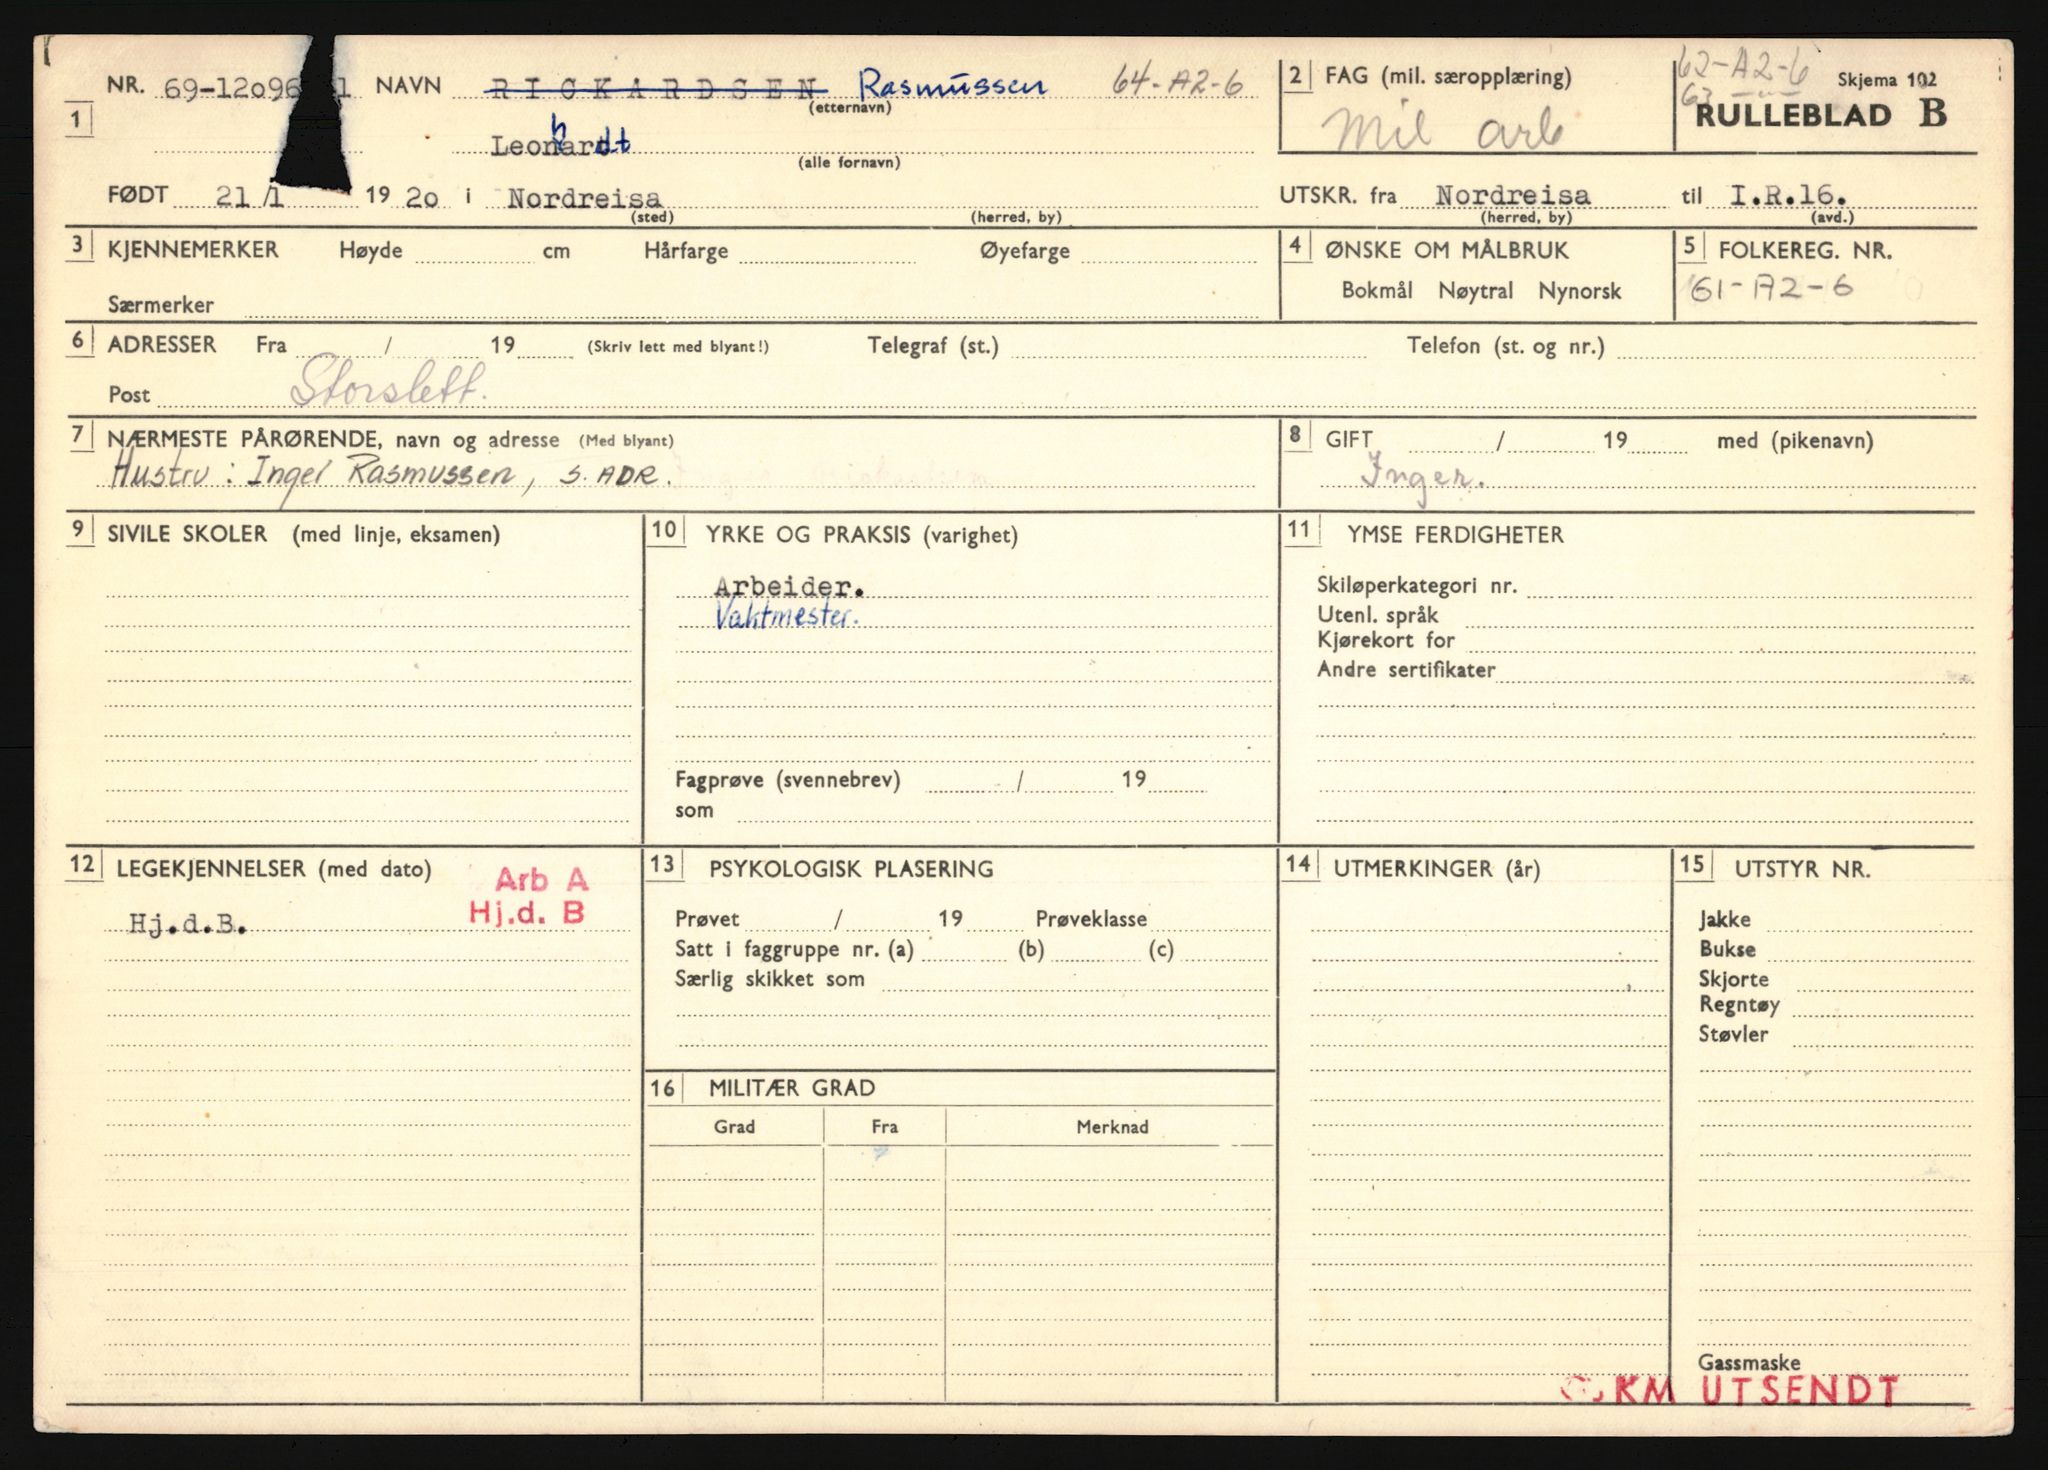 NR. 69-12096 1 NAVN RICKARDSEN Rasmussen 64-A2-6
(etternavn)
1
Leonhardt
(alle fornavn)
FØDT 21/1 1920 i Nordreisa
(sted) (herred, by)
2 FAG (mil. særopplæring)
Mil arb
62-A2-6
63 —"—
Skjema 102
RULLEBLAD B
UTSKR. fra Nordreisa til I.R.16.
(herred, by) (avd.)
3 KJENNEMERKER Høyde cm Hårfarge Øyefarge
Særmerker
4 ØNSKE OM MÅLBRUK
Bokmål Nøytral Nynorsk
5 FOLKEREG. NR.
61-A2-6
6 ADRESSER Fra / 19 (Skriv lett med blyant!) Telegraf (st.) Telefon (st. og nr.)
Post Storslett.
7 NÆRMESTE PÅRØRENDE, navn og adresse (Med blyant)
Hustru: Inger Rasmussen, S. ADR.
8 GIFT / 19 med (pikenavn)
Inger.
9 SIVILE SKOLER (med linje, eksamen)
10 YRKE OG PRAKSIS (varighet)
Arbeider.
Vaktmester.
Fagprøve (svennebrev) / 19
som
11 YMSE FERDIGHETER
Skiløperkategori nr.
Utenl. språk
Kjørekort for
Andre sertifikater
12 LEGEKJENNELSER (med dato)
Arb A
Hj.d. B
Hj.d.B.
13 PSYKOLOGISK PLASERING
Prøvet / 19 Prøveklasse
Satt i faggruppe nr. (a) (b) (c)
Særlig skikket som
14 UTMERKINGER (år)
15 UTSTYR NR.
Jakke
Bukse
Skjorte
Regntøy
Støvler
16 MILITÆR GRAD
Grad Fra Merknad
Gassmaske
KM UTSENDT